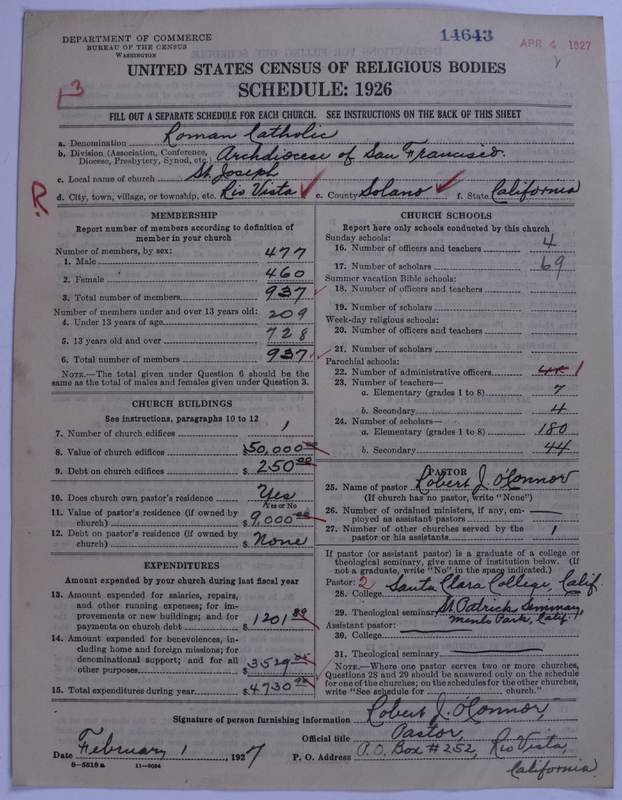 DEPARTMENT OF COMMERCE
BUREAU OF THE CENSUS
WASHINGTON
14643
APR 4 1927
UNITED STATES CENSUS OF RELIGIOUS BODIES
SCHEDULE: 1926
3
FILL OUT A SEPARATE SCHEDULE FOR EACH CHURCH. SEE INSTRUCTIONS ON THE BACK OF THIS SHEET
a. Denomination Roman Catholic
b. Division (Association, Conference, Diocese, Presbytery, Synod, etc.) Archdiocese of San Francisco.
c. Local name of church St. Joseph
R
d. City, town, village, or township, etc. Rio Vista e. County Solano f. State California
MEMBERSHIP
Report number of members according to definition of
member in your church
Number of members, by sex:
1. Male 477
2. Female 460
3. Total number of members 937
Number of members under and over 13 years old:
4. Under 13 years of age 209
5. 13 years old and over 728
6. Total number of members 937
NOTE.—The total given under Question 6 should be the
same as the total of males and females given under Question 3.
CHURCH BUILDINGS
See instructions, paragraphs 10 to 12
7. Number of church edifices 1
8. Value of church edifices $50,000 00
9. Debt on church edifices $ 250 00
10. Does church own pastor's residence Yes
Yes or No
11. Value of pastor's residence (if owned by
church) $ 9,000 00
12. Debt on pastor's residence (if owned by
church) $ None
EXPENDITURES
Amount expended by your church during last fiscal year
13. Amount expended for salaries, repairs,
and other running expenses; for im-
provements or new buildings; and for
payments on church debt $ 1201 89
14. Amount expended for benevolences, in-
cluding home and foreign missions; for
denominational support; and for all
other purposes $ 3529
15. Total expenditures during year $ 4730
CHURCH SCHOOLS
Report here only schools conducted by this church
Sunday schools:
16. Number of officers and teachers 4
17. Number of scholars 69
Summer vacation Bible schools:
18. Number of officers and teachers
19. Number of scholars
Week-day religious schools:
20. Number of officers and teachers
21. Number of scholars
Parochial schools:
22. Number of administrative officers 1
23. Number of teachers—
a. Elementary (grades 1 to 8) 7
b. Secondary 4
24. Number of scholars—
a. Elementary (grades 1 to 8) 180
b. Secondary 44
PASTOR
25. Name of pastor Robert J. O'Connor
(If church has no pastor, write "None")
26. Number of ordained ministers, if any, em-
ployed as assistant pastors —
27. Number of other churches served by the
pastor or his assistants 1
If pastor (or assistant pastor) is a graduate of a college or
theological seminary, give name of institution below. (If
not a graduate, write "No" in the space indicated.)
Pastor: 2
28. College Santa Clara College, Calif.
29. Theological seminary St. Patricks Seminary,
Menlo Park, Calif.
Assistant pastor:
30. College
31. Theological seminary
NOTE.—Where one pastor serves two or more churches,
Questions 28 and 29 should be answered only on the schedule
for one of the churches; on the schedules for the other churches,
write "See schedule for church."
Signature of person furnishing information Robert J. O'Connor,
Official title Pastor,
Date February 1, 1927
P. O. Address P.O. Box #252, Rio Vista,
California.
8-5518a 11-9034